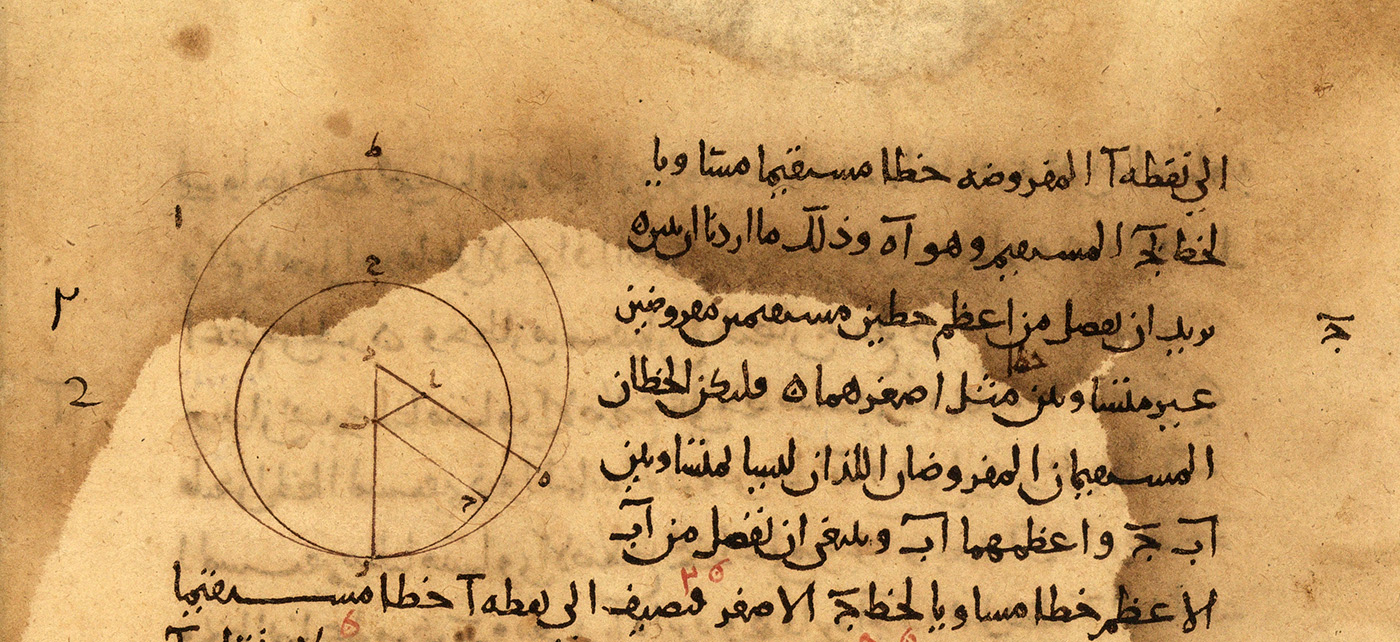 الى نقطه آ المفروضه خطا مستقيما مساويا
لخط بج المستقيم وهو اه وذلك ما اردنا ان نبين ه
نريد ان نفصل من اعظم خطين مستقيمين مفروضين
خطا
غير متساويين مثل اصغرهما ه فليكن الخطان
المستقيمان المفروضان اللذان ليسا بمتساويين
اب ج واعظمهما اب وينبغى ان نفصل من اب
الاعظم خطا مساويا لخط ج الاصغر فنضيف الى نقطه آ خطا مستقيما
ط
ح
د
ب
ه
ج
ا
٢
2
ج